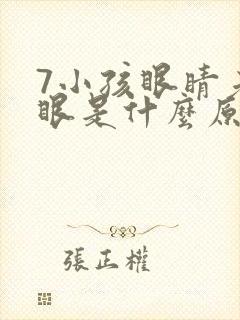 7小孩眼睛
眼是什麼原
張正權